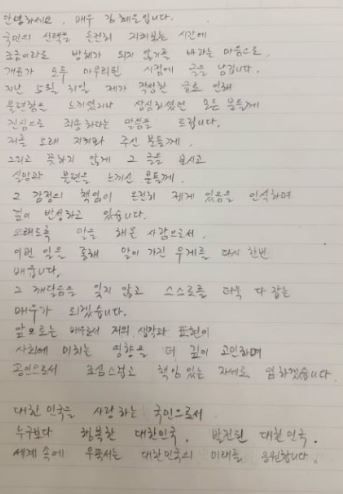 안녕하세요. 배우 김혜은입니다.
국민의 선택을 온전히 지켜보는 시간에
조금이라도 방해가 되지 않기를 바라는 마음으로,
개표가 모두 마무리된 시점에 글을 남깁니다.
지난 5월 30일 제가 작성한 글로 인해
불편함을 느끼셨거나 상심하셨던 모든 분들께
진심으로 죄송하다는 말씀을 드립니다.
저를 오래 지켜봐 주신 분들께,
그리고 뜻하지 않게 그 글을 보시고
실망과 불편을 느끼신 분들께.
그 감정의 책임이 온전히 제게 있음을 인식하며
깊이 반성하고 있습니다.
오래도록 말을 해온 사람으로서,
이런 일을 통해 말이 가진 무게를 다시 한번
배웁니다.
그 깨달음을 잊지 않고 스스로를 더욱 다잡는
배우가 되겠습니다.
앞으로는 배우로서 저의 생각과 표현이
사회에 미치는 영향을 더 깊이 고민하며
공인으로서 조심스럽고 책임 있는 자세로 임하겠습니다.
대한민국을 사랑하는 국민으로서
누구보다 행복한 대한민국, 발전된 대한민국,
세계 속에 우뚝서는 대한민국의 미래를 응원합니다.